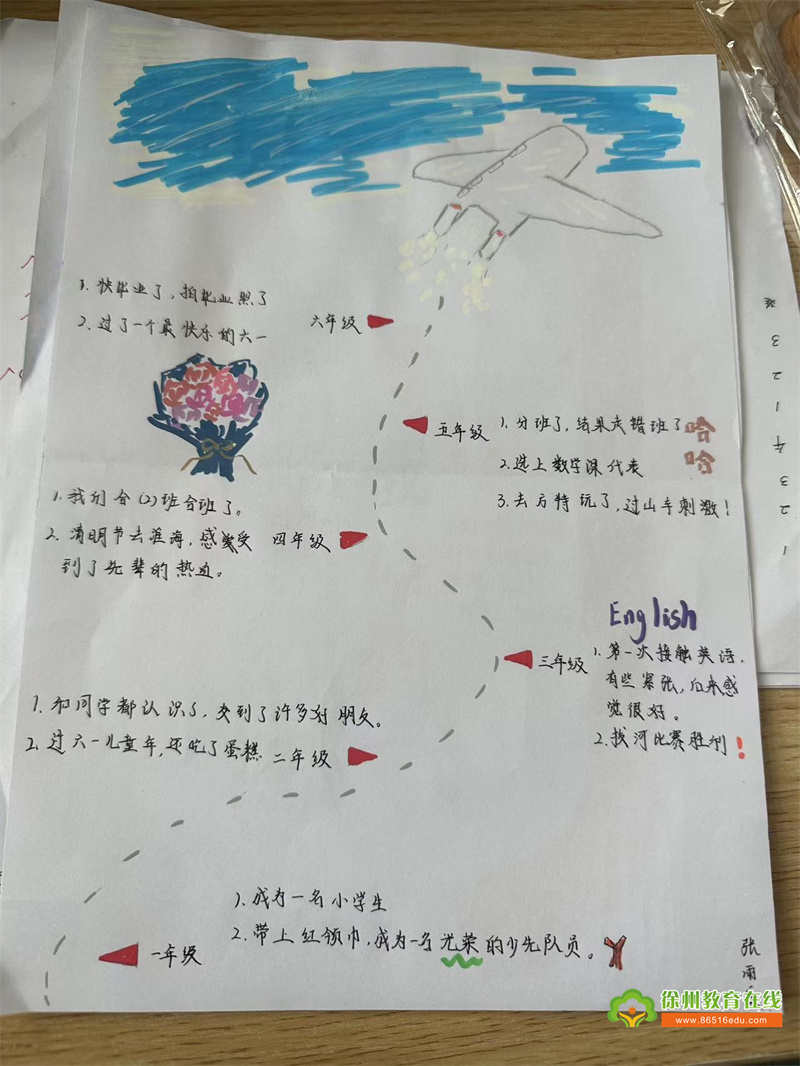 1. 快毕业了，拍毕业照了
2. 过了一个最快乐的六一
六年级
五年级
1. 分班了，结果走错班了哈哈
2. 选上数学课代表
3. 去方特玩了，过山车刺激！
1. 我们合(2)班合班了。
2. 清明节去淮海，感受
到了先辈的热血。
四年级
English
三年级
1. 第一次接触英语，
有些紧张，后来感
觉很好。
2. 拔河比赛胜利！
1. 和同学都认识了，交到了许多好朋友。
2. 过六一儿童年，还吃了蛋糕
二年级
1. 成为一名小学生
2. 带上红领巾，成为一名光荣的少先队员。
一年级
张雨
3
2
1
4
3
2
1
徐州教育在线
www.86516edu.com